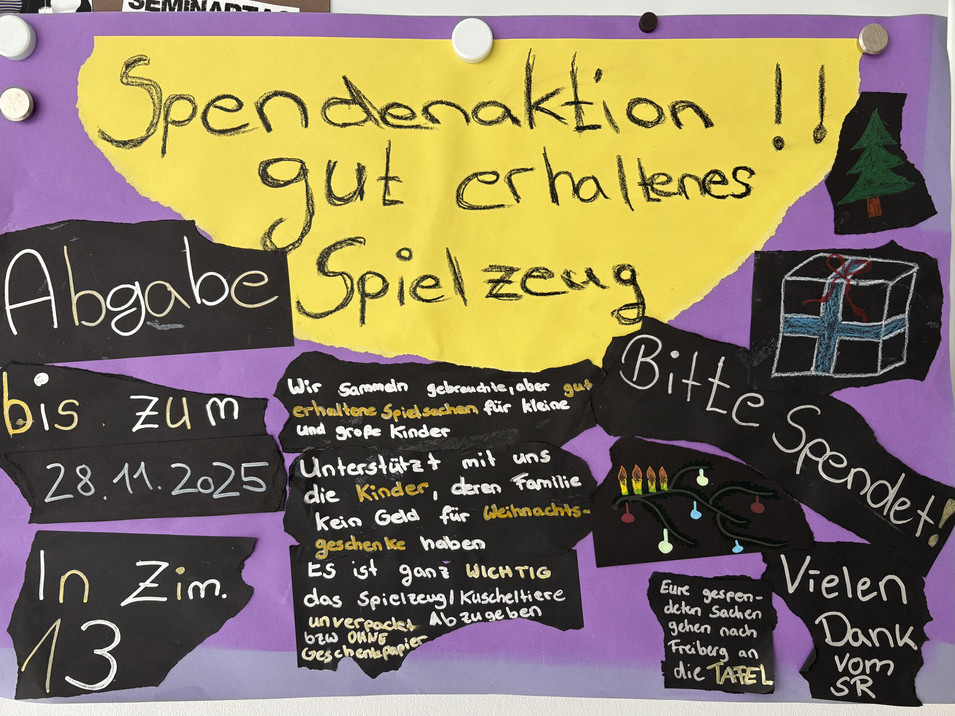 SEMINARTAG
Spendenaktion !!
gut erhaltenes
Spielzeug
Abgabe
bis zum
28.11.2025
In Zim.
13
Wir sammeln gebrauchte, aber gut
erhaltene Spielsachen für kleine
und große Kinder
Unterstützt mit uns
die Kinder, deren Familie
kein Geld für Weihnachts-
geschenke haben
Es ist ganz WICHTIG
das Spielzeug/Kuscheltiere
unverpackt Abzugeben
bzw OHNE
Geschenkpapier
Bitte Spendet!
Eure gespen-
deten Sachen
gehen nach
Freiberg an
die TAFEL
Vielen
Dank
vom
SR